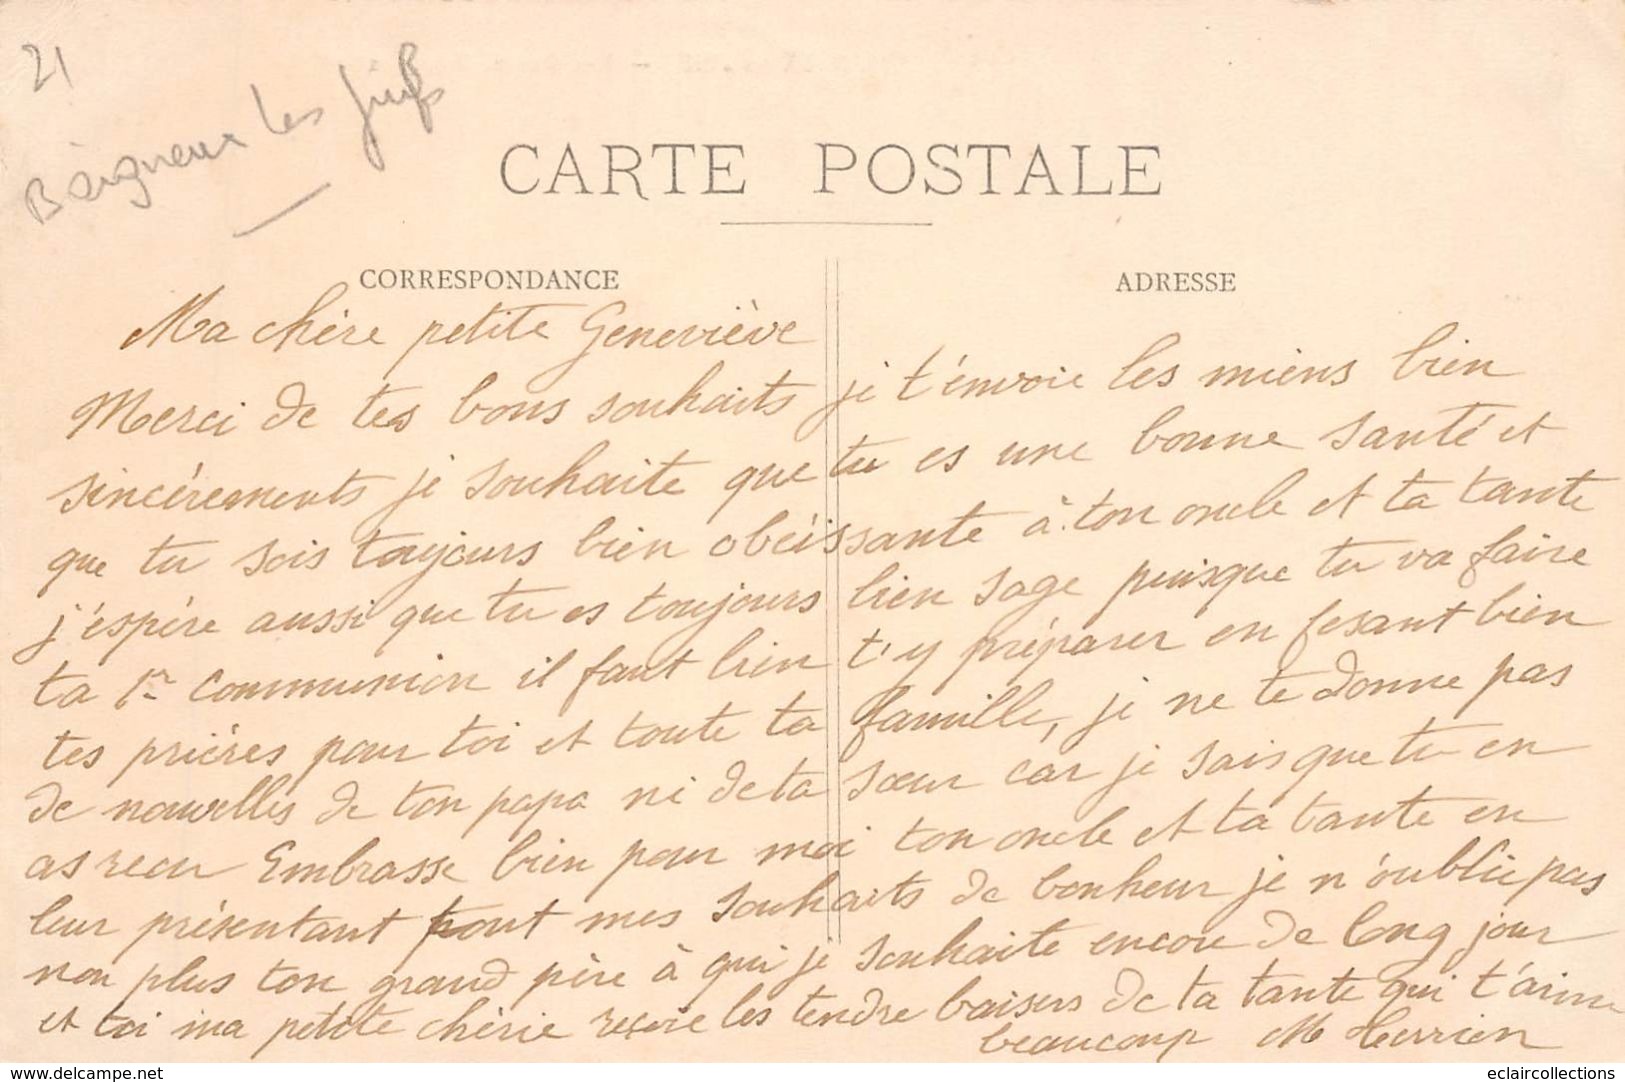 21
Baigneux les Juifs
CARTE POSTALE
CORRESPONDANCE
ADRESSE
Ma chère petite Geneviève
Merci de tes bons souhaits je t'envoie les miens bien
sincèrements je souhaite que tu es une bonne santé et
que tu sois toujours bien obéissante à ton oncle et ta tante
j'éspère aussi que tu es toujours bien sage puisque tu va faire
ta 1re communion il faut bien t'y préparer en fesant bien
tes prières pour toi et toute ta famille, je ne te donne pas
de nouvelles de ton papa ni de ta sœur car je sais que tu en
as recu Embrasse bien pour moi ton oncle et ta tante en
leur présentant tout mes souhaits de bonheur je n'oublie pas
non plus ton grand père à qui je souhaite encore de long jour
et toi ma petite chérie reçoie les tendre baisers de ta tante qui t'aime
beaucoup M Herrien
www.delcampe.net
eclaircollections